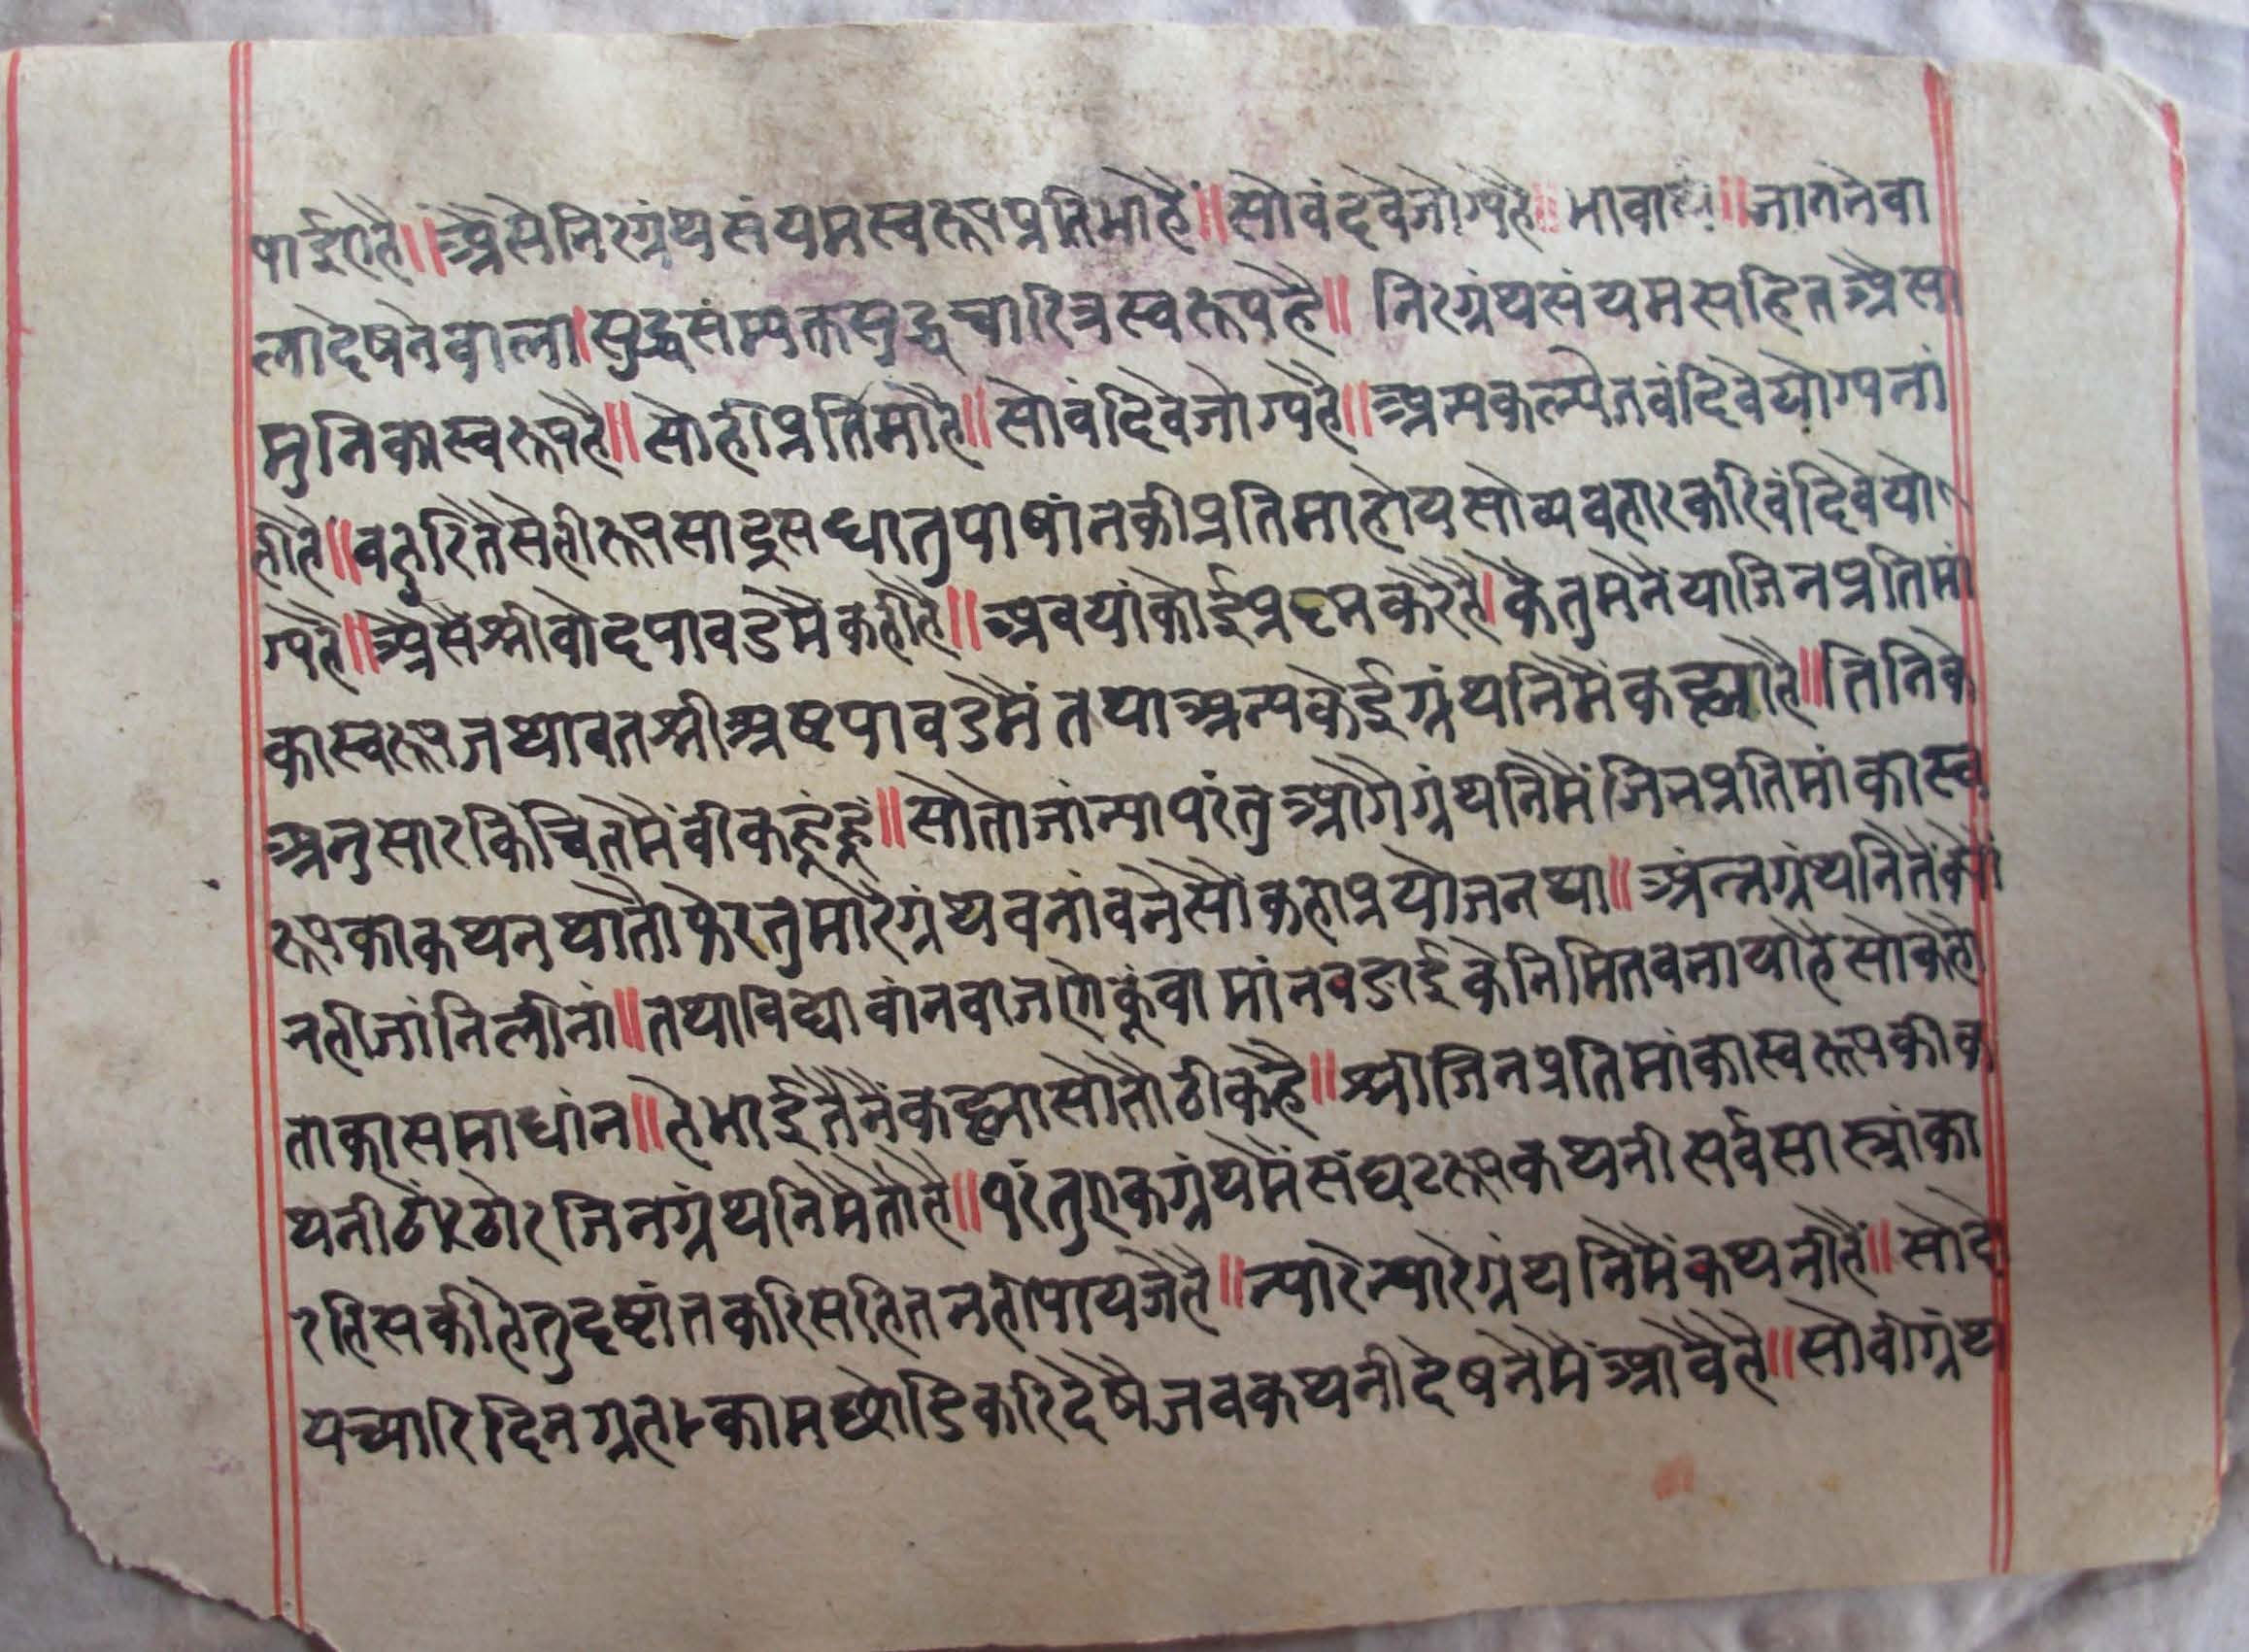 षाईएहै॥ अैसैनिरग्रंथसंयमस्वरूपप्रतिमाहै॥ सोवंदवेजोग्यहै॥ भावार्थ॥ जातनेवा
लादेषनेवाला। सुद्धसंम्यक्तसुद्धचारित्रस्वरूपहै॥ निरग्रंथसंयमसहितअैसा
मुनिकास्वरूपहै॥ सोहीप्रतिमाहै॥ सोवंदिवेजोग्यहै॥ अमकल्पेतवंदिवेयोग्यनां
हीहै॥ बहुरितैसेहीरूपसादृसधातुपाषांनकीप्रतिमाहोयसोव्यवहारकरिवंदिवेयो
ग्यहै॥ अैसैश्रीबोदपावडमैंकहीहै॥ अवयांकोईप्रस्नकरैहै। कैतुमनेयाजिनप्रतिमां
कास्वरूपजथावतश्रीअष्टपावडमैंतथाअन्यकेईग्रंथनिमैंकह्याहै॥ तिनिके
अनुसारकिंचितमैंवीकहूंहूं॥ सोतोजांन्यापरंतुआगैग्रंथनिमैंजिनप्रतिमांकास्व
रूपकाकथनथातोफेरतुमारैग्रंथवनांवनेसौंकहाप्रयोजनथा॥ अंन्नग्रंथनितैंक्यौं
नहीजांनिलीनां॥ तथाविद्यावांनवाजणेकूंवामांनवडाईकेनिमितवनायोहैसोकहो
ताकासमाधांन॥ हेभाईतैनैंकह्यासोतोठीकहै॥ श्रीजिनप्रतिमांकास्वरूपकीक
थनीठौरठौरजिनग्रंथनिमैंतोहै॥ परंतुएकग्रंथमैंसंघटरूपकथनीसर्वसास्त्रांका
रहिसकीहेतुदृष्टांतकरिसहितनहीपायजैहै॥ न्यारेन्यारेग्रंथनिमैंकथनीहैं॥ सोदो
यच्यारिदिनग्रहकामछोडिकरिदेषैजवकथनीदेषनेमैंआवैहै॥ सोवीग्रंथ